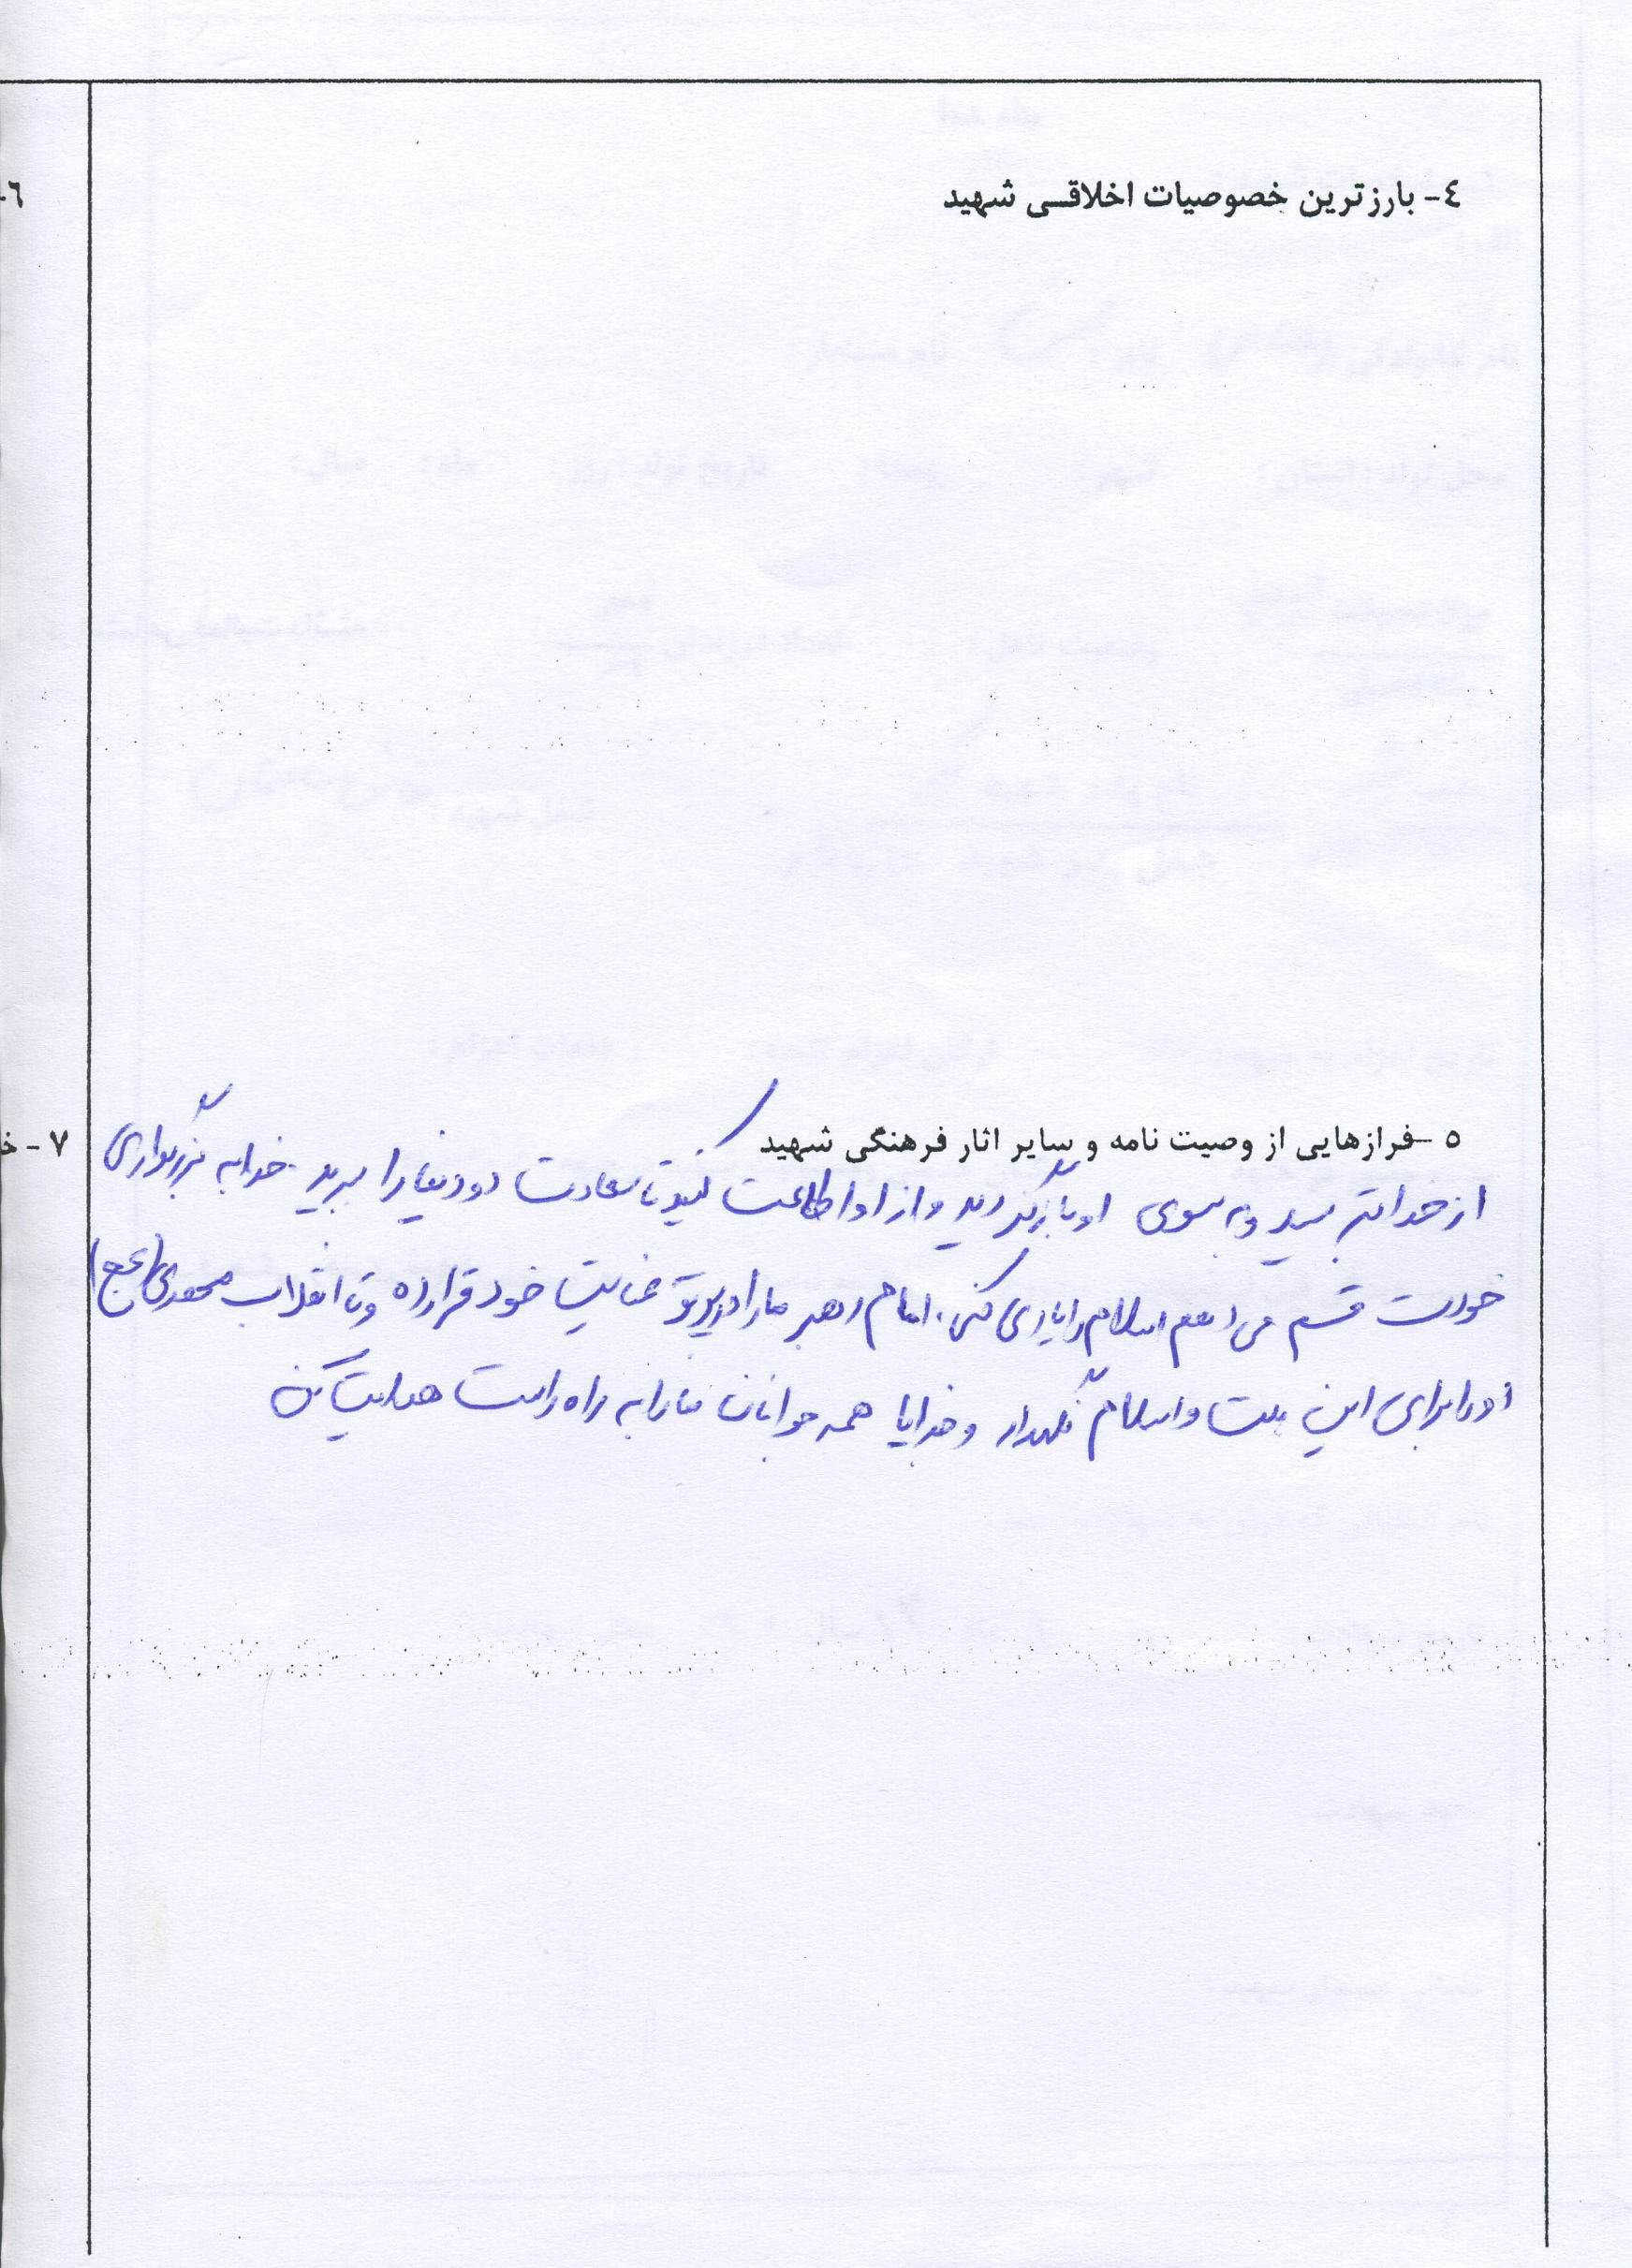 ٤- بارزترین خصوصیات اخلاقی شهید
٦-
٥- فرازهایی از وصیت نامه و سایر اثار فرهنگی شهید
٧- خ
از خدا بترسید و به سوی او بازگردید و از او اطاعت کنید تا سعادت دو دنیا را ببرید. خدا به بزرگواری
خودت قسم می دهم اسلام را یاری کن. امام رهبر ما را در پرتو عنایت خود قرار ده و تا انقلاب مهدی (عج)
او را برای این ملت و اسلام نگهدار و خدایا همه جوانان ما را به راه راست هدایت کن